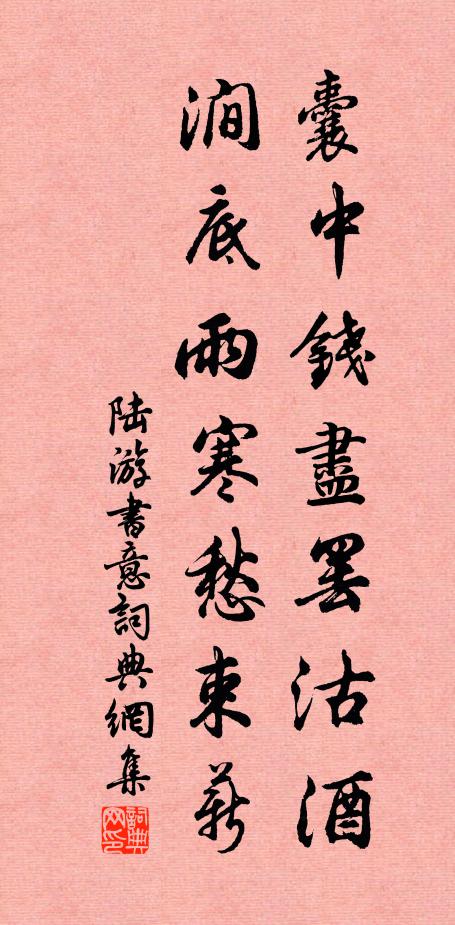 囊中錢盡罢沽酒
澗底雨寒愁束薪
陆游書意詞典網集
詞典網印